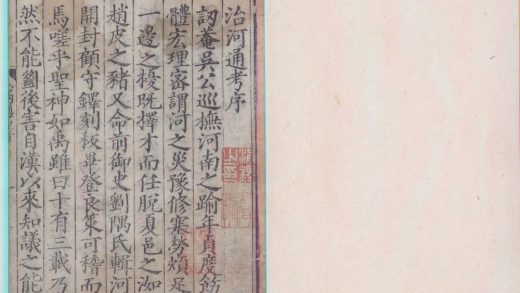 治河通考序
訒菴吳公巡撫河南之踰年貞度飭
體宏理審謂河之災豫修塞勞煩足
一邊之擾既擇才而任脫夏邑之洳
趙皮之豬又命前御史劉隅氏輯河
開封顧守鐸刻板畢登良策可稽而
馬嗟乎聖神如禹雖曰十有三載乃
然不能斷後害自漢以來知議之能